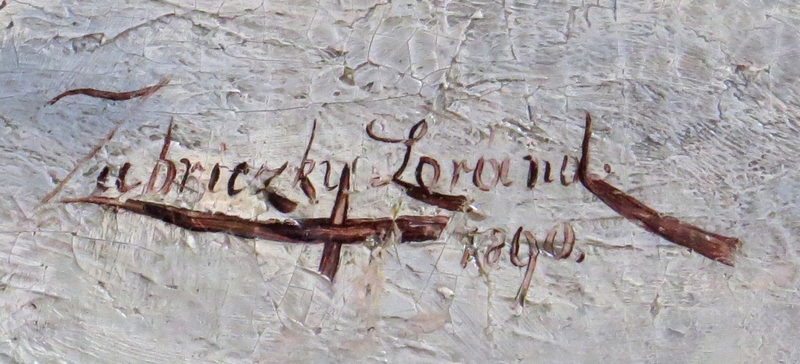 Zubriczky Lorand.
1890.